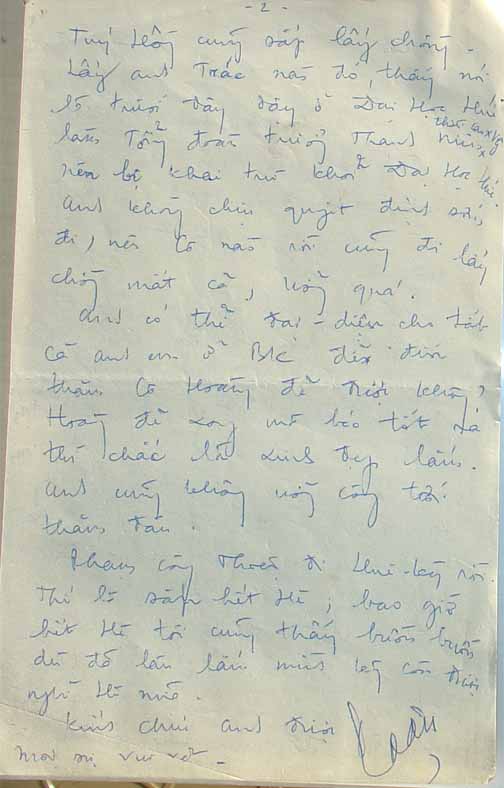 - 2 -
Tuý Hồng cũng sắp lấy chồng -
Lấy anh Trác nào đó, thấy nói
là trước đây dạy ở Đại Học Huế
làm Tổng đoàn trưởng Thanh niên
nên bị khai trừ khỏi Đại Học Huế.
anh không chịu quyết định sớm
đi, nên cô nào rồi cũng đi lấy
chồng mất cả, uổng quá.
anh có thể đại-diện cho tất
cả anh em ở BK đến
thăm cô Hoàng để được không?
Hoàng để xong mà bảo tốt
thì chắc là xinh đẹp lắm.
anh cũng không uổng công tới
thăm đâu.
Phạm Công Thiện đi Huê-kỳ rồi.
Thế là sắp hết Hè; bao giờ
hết Hè tôi cũng thấy buồn buồn
dù đã lớn lắm mà còn được
nghỉ Hè nữa.
Kính chúc anh được
mọi sự vui vẻ -